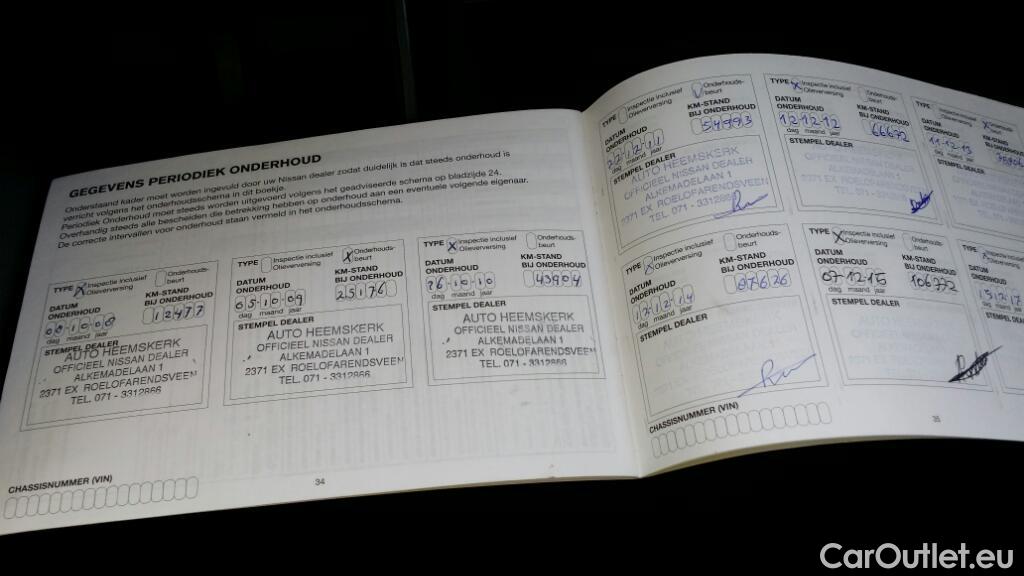 GEGEVENS PERIODIEK ONDERHOUD
Onderstaand kader moet worden ingevuld door uw Nissan dealer zodat duidelijk is dat steeds onderhoud is
verricht volgens het onderhoudsschema in dit boekje.
Periodiek Onderhoud moet steeds worden uitgevoerd volgens het geadviseerde schema op bladzijde 24.
Overhandig steeds alle bescheiden die betrekking hebben op onderhoud aan een eventuele volgende eigenaar.
De correcte intervallen voor onderhoud staan vermeld in het onderhoudsschema.
TYPE X Inspectie inclusief Olieverversing Onderhouds-beurt
DATUM ONDERHOUD KM-STAND BIJ ONDERHOUD
12477
dag maand jaar
STEMPEL DEALER
AUTO HEEMSKERK
OFFICIEEL NISSAN DEALER
ALKEMADELAAN 1
2371 EX ROELOFARENDSVEEN
TEL. 071 - 3312866
TYPE Inspectie inclusief Olieverversing X Onderhouds-beurt
DATUM ONDERHOUD KM-STAND BIJ ONDERHOUD
05-10-09 25176
dag maand jaar
STEMPEL DEALER
AUTO HEEMSKERK
OFFICIEEL NISSAN DEALER
ALKEMADELAAN 1
2371 EX ROELOFARENDSVEEN
TEL. 071 - 3312866
TYPE X Inspectie inclusief Olieverversing Onderhouds-beurt
DATUM ONDERHOUD KM-STAND BIJ ONDERHOUD
43904
dag maand jaar
STEMPEL DEALER
AUTO HEEMSKERK
OFFICIEEL NISSAN DEALER
ALKEMADELAAN 1
2371 EX ROELOFARENDSVEEN
TEL. 071 - 3312866
CHASSISNUMMER (VIN)
34
TYPE Inspectie inclusief Olieverversing Onderhouds-beurt
DATUM ONDERHOUD KM-STAND BIJ ONDERHOUD
54993
dag maand jaar
STEMPEL DEALER
AUTO HEEMSKERK
OFFICIEEL NISSAN DEALER
ALKEMADELAAN 1
2371 EX ROELOFARENDSVEEN
TEL. 071 - 3312866
TYPE X Inspectie inclusief Olieverversing Onderhouds-beurt
DATUM ONDERHOUD KM-STAND BIJ ONDERHOUD
12-12-12 66672
dag maand jaar
STEMPEL DEALER
TYPE Inspectie inclusief Olieverversing X
DATUM ONDERHOUD KM-
BIJ
11-12-13
dag maand jaar
STEMPEL DEALER
TYPE X Inspectie inclusief Olieverversing Onderhouds-beurt
DATUM ONDERHOUD KM-STAND BIJ ONDERHOUD
121214 87626
dag maand jaar
STEMPEL DEALER
TYPE X Inspectie inclusief Olieverversing Onderhouds-beurt
DATUM ONDERHOUD KM-STAND BIJ ONDERHOUD
07-12-15 106772
dag maand jaar
STEMPEL DEALER
TYPE
DATUM
ONDERHOUD
dag maand
STEMPEL DEALER
CHASSISNUMMER (VIN)
35
CarOutlet.eu